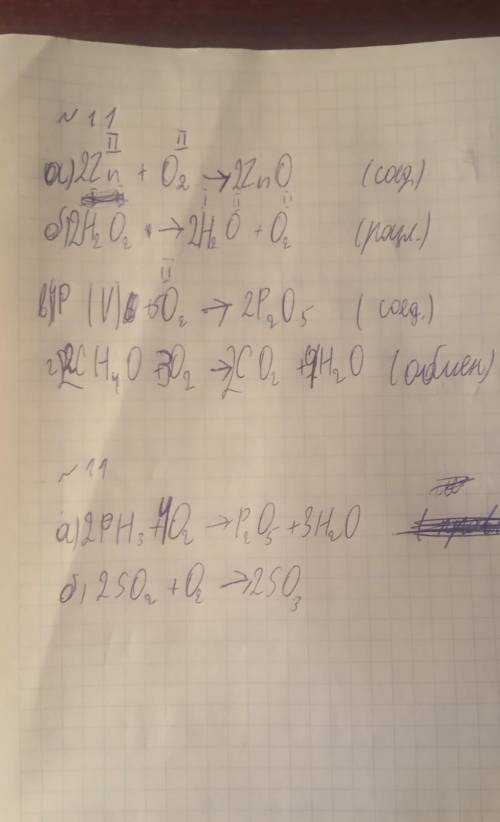 № 11
II II
а) 2Zn + O2 → 2ZnO (соед.)
I II II
б) 2H2O2 → 2H2O + O2 (разл.)
II
в) 4P (V) + 5O2 → 2P2O5 (соед.)
г) 2CH4O + 3O2 → 2CO2 + 4H2O (обмен)
№ 11
а) 2PH3 + 4O2 → P2O5 + 3H2O
б) 2SO2 + O2 → 2SO3